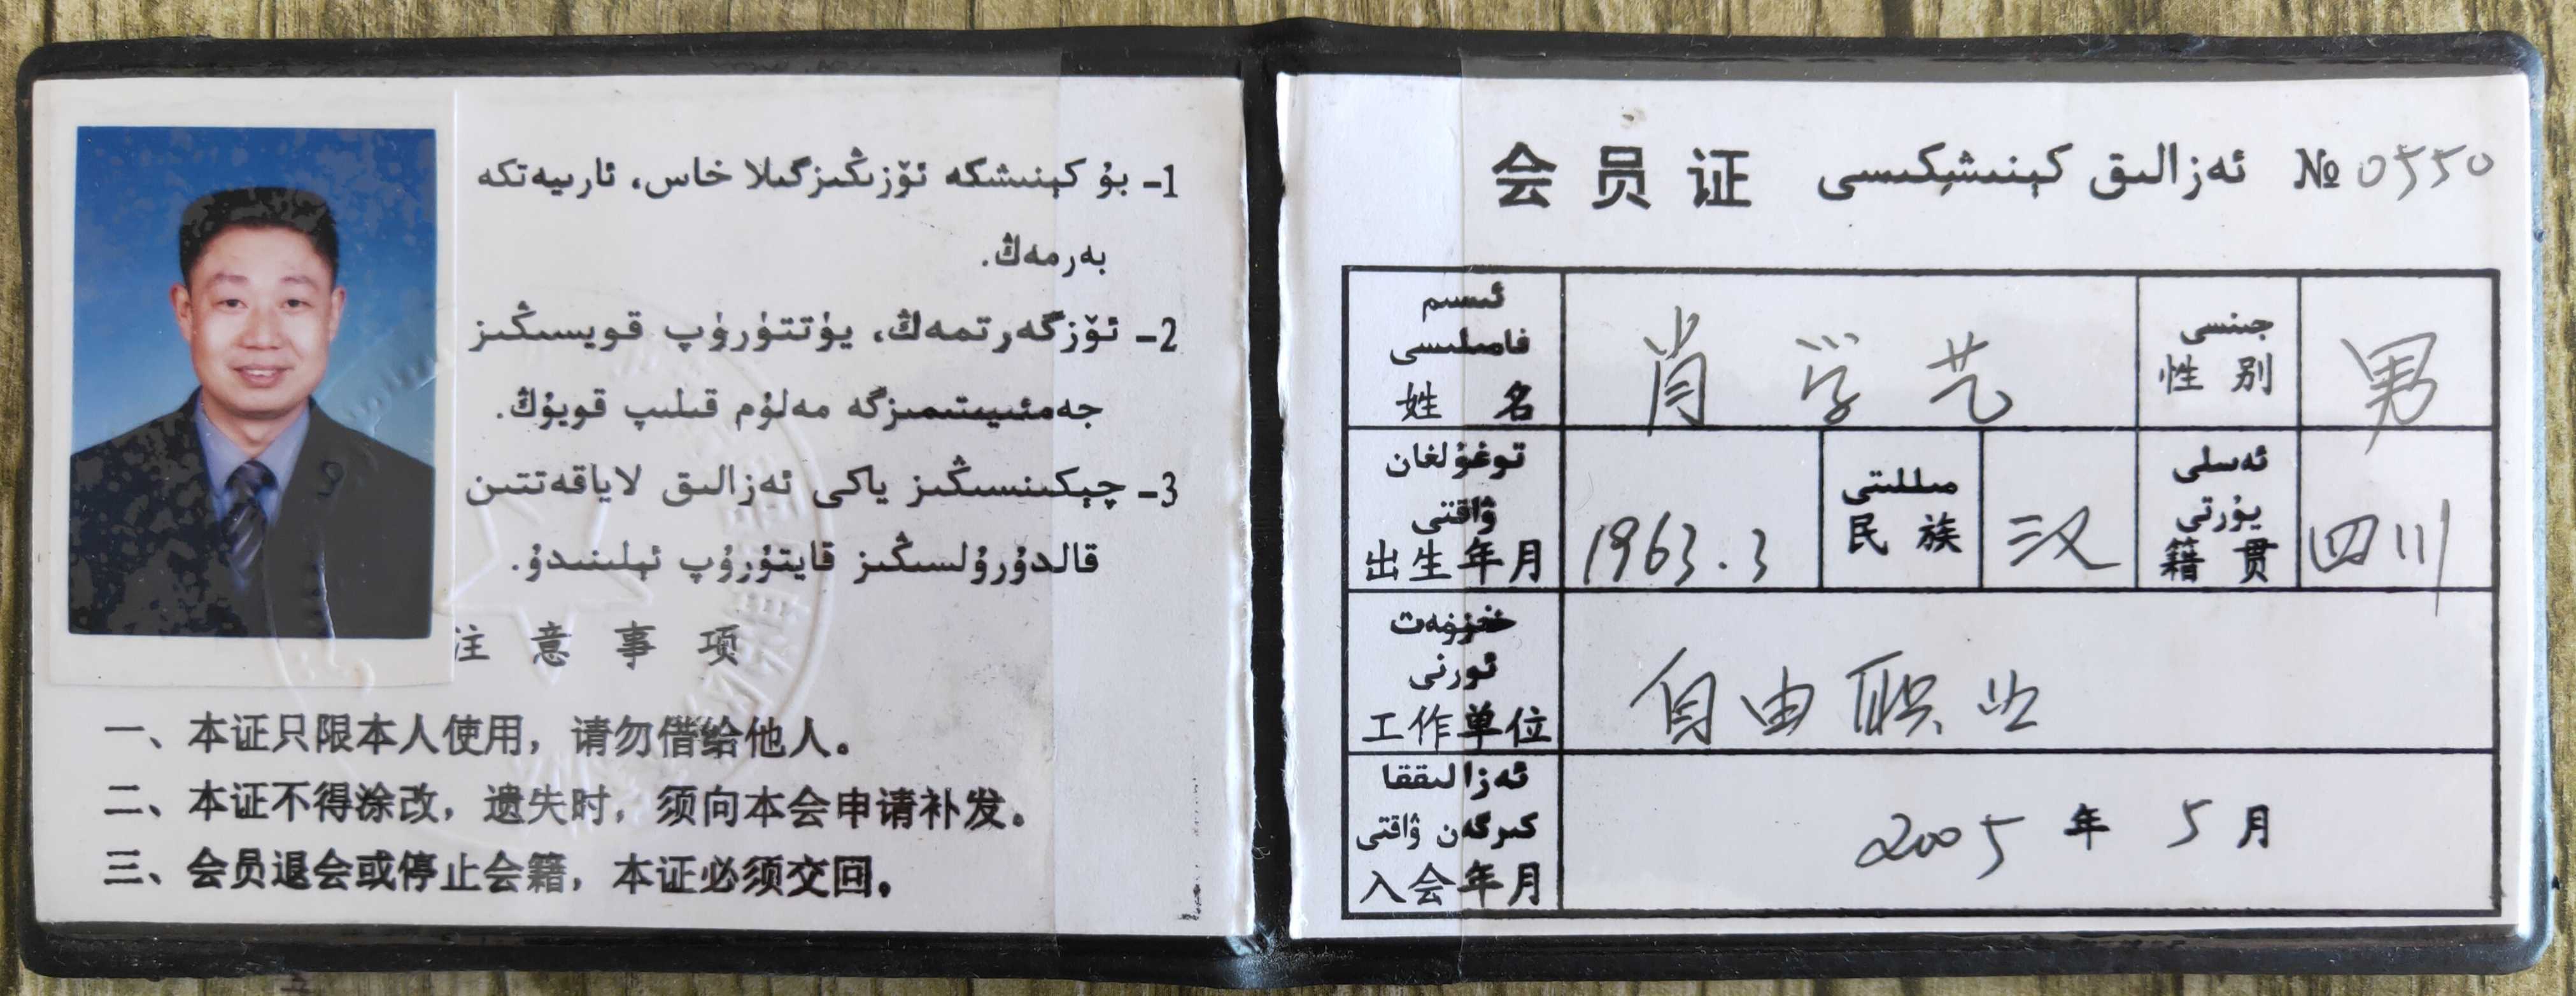 1- بۇ كېنىشكە ئۆزىڭىزگىلا خاس، ئارىيەتكە
بەرمەڭ.
2- ئۆزگەرتمەڭ، يۈتتۈرۈپ قويسىڭىز
جەمئىيىتىمىزگە مەلۇم قىلىپ قويۇڭ.
3- چېكىنسىڭىز ياكى ئەزالىق لاياقەتتىن
قالدۇرۇلسىڭىز قايتۇرۇپ ئېلىنىدۇ.
注 意 事 项
一、本证只限本人使用，请勿借给他人。
二、本证不得涂改，遗失时，须向本会申请补发。
三、会员退会或停止会籍，本证必须交回。
会 员 证 ئەزالىق كېنىشكىسى № 0550
ئىسىم
فامىلىسى
姓 名
肖 学 艺
جىنسى
性 别
男
تۇغۇلغان
ۋاقتى
出生年月
1963.3
مىللىتى
民 族
汉
ئەسلى
يۇرتى
籍 贯
四川
خىزمەت
ئورنى
工作单位
自由职业
ئەزالىققا
كىرگەن ۋاقتى
入会年月
2005 年 5 月